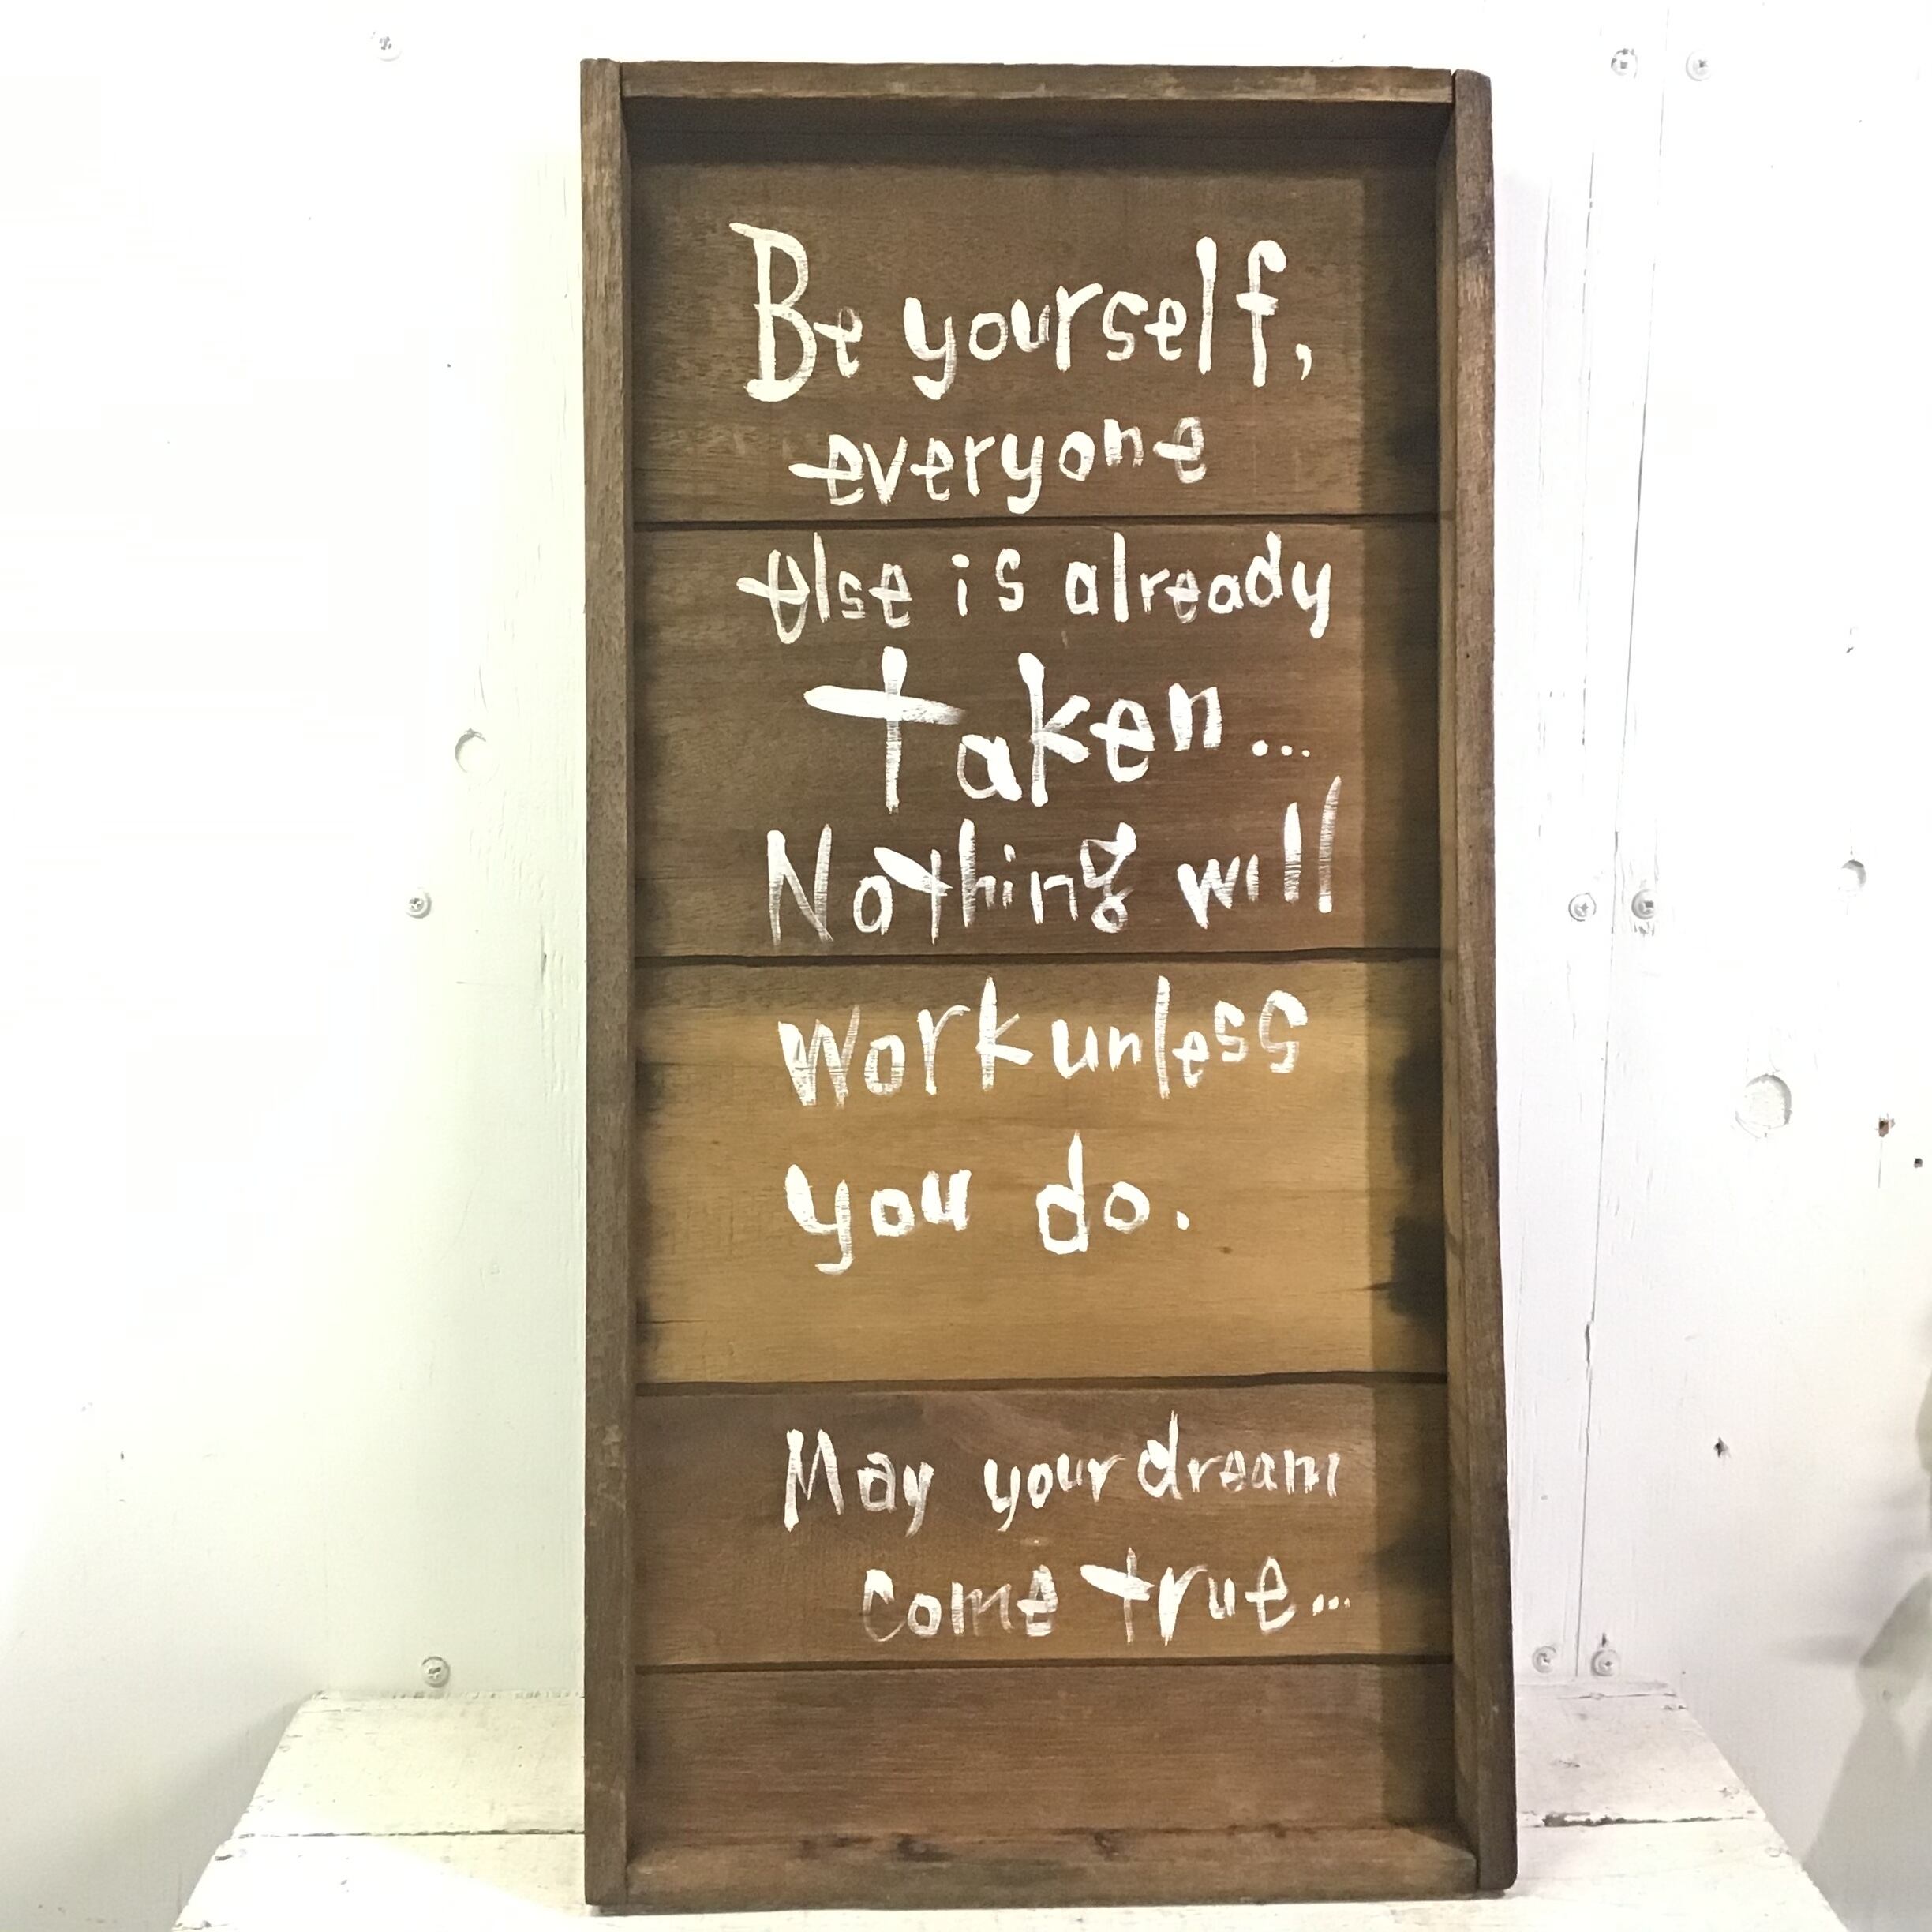 Be yourself,
everyone
else is already
taken...
Nothing will
Work unless
you do.
May your dream
come true...